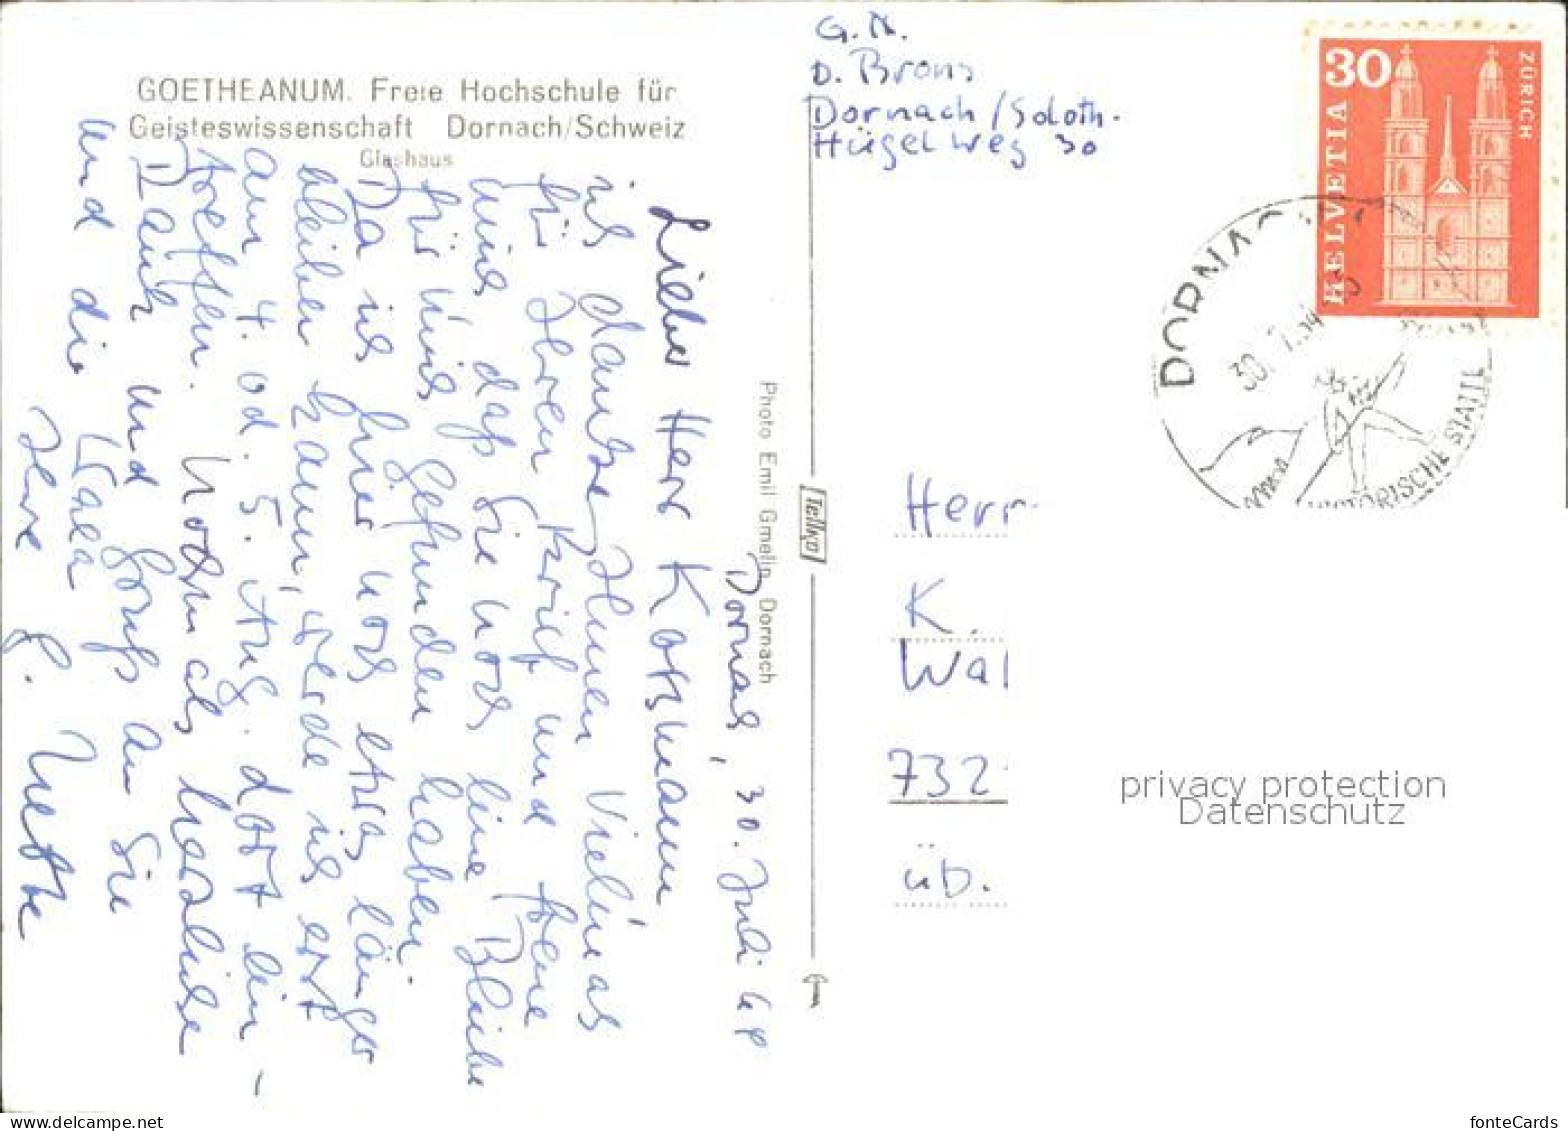 GOETHEANUM. Freie Hochschule für
Geisteswissenschaft Dornach/Schweiz
Glashaus
Dornach, 30. Juli 68
Lieber Herr Kossmann
ich danke Ihnen Vielmals
für Ihren Brief und freue
mich daß Sie noch eine Bleibe
für mich gefunden haben.
Da ich hier noch etwas länger
bleiben kann, werde ich erst
am 4. od. 5. Aug. dort ein-
treffen. Nochmals herzliche
Dank und Gruß an Sie
und die
Ihre G.
Photo Emil Gmelin Dornach
Tellko
G. N.
D. Brons
Dornach/Soloth.
Hügelweg 30
HELVETIA
30
ZÜRICH
DORNA
30. 7.
HISTORISCHE STÄTTE
Herr
K.
Wal
732
üb.
privacy protection
Datenschutz
www.delcampe.net
fonteCards